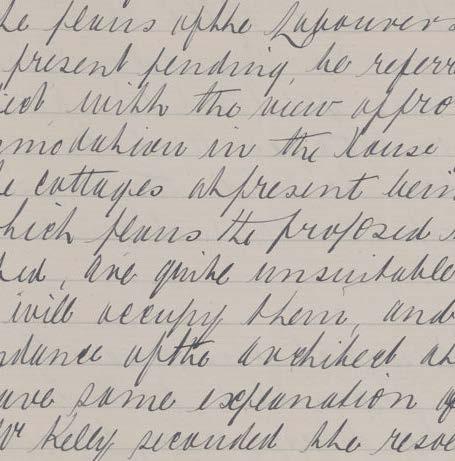 he plans of the Labourers
present pending, be referr
ject with the view of pro
modation in the house
e cottages at present bein
hich plans the proposed
hed, are quite unsuitable
will occupy them, and
ndance of the architect at
ave some explanation of
Mr Kelly seconded the reso